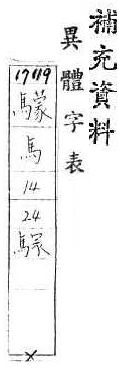 補充資料
異體字表
17119
驟
馬
14
24
騾